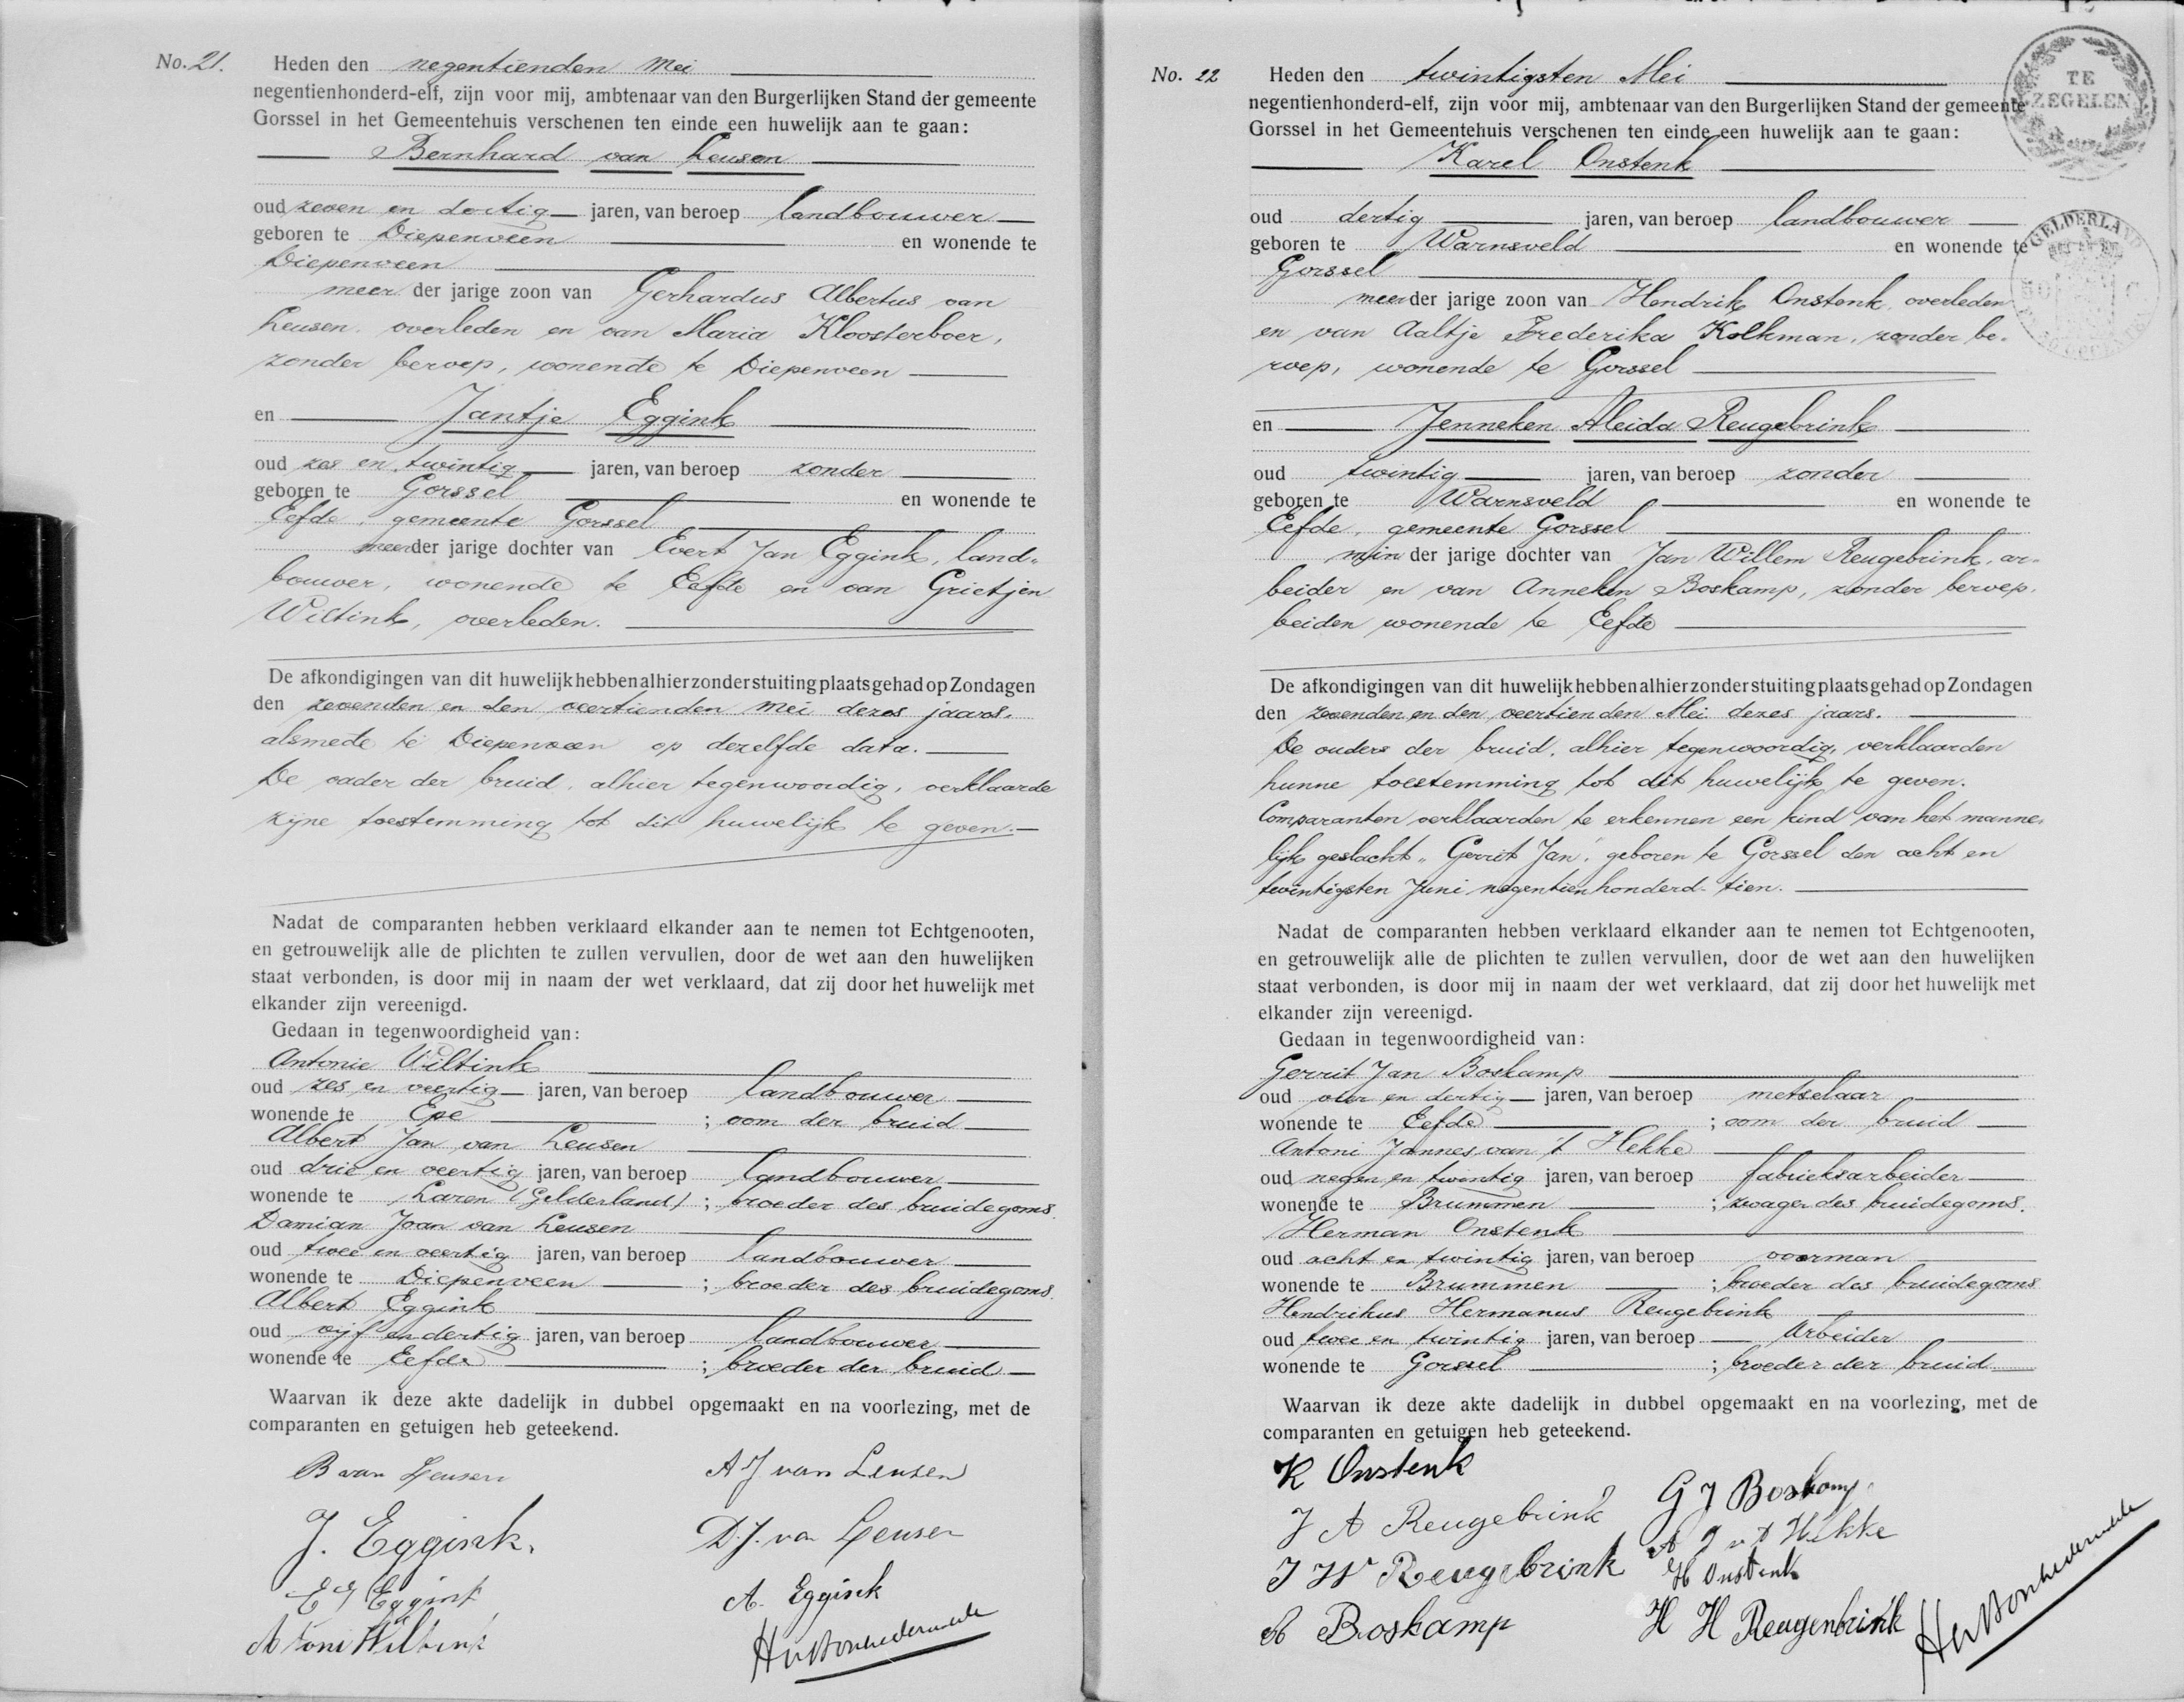 No. 21. Heden den negentienden Mei
negentienhonderd-elf, zijn voor mij, ambtenaar van den Burgerlijken Stand der gemeente
Gorssel in het Gemeentehuis verschenen ten einde een huwelijk aan te gaan:
Bernhard van Leusen
oud zeven en dertig jaren, van beroep landbouwer
geboren te Diepenveen en wonende te
Diepenveen
meer der jarige zoon van Gerhardus Albertus van
Leusen, overleden en van Maria Kloosterboer,
zonder beroep, wonende te Diepenveen
en Jantje Eggink
oud zes en twintig jaren, van beroep zonder
geboren te Gorssel en wonende te
Eefde, gemeente Gorssel
meerder jarige dochter van Evert Jan Eggink, land-
bouwer, wonende te Eefde en van Grietjen
Wiltink, overleden.
De afkondigingen van dit huwelijk hebben alhier zonder stuiting plaats gehad op Zondagen
den zevenden en den veertienden Mei dezes jaars,
alsmede te Diepenveen op dezelfde data.
De vader der bruid, alhier tegenwoordig, verklaarde
zijne toestemming tot dit huwelijk te geven.
Nadat de comparanten hebben verklaard elkander aan te nemen tot Echtgenooten,
en getrouwelijk alle de plichten te zullen vervullen, door de wet aan den huwelijken
staat verbonden, is door mij in naam der wet verklaard, dat zij door het huwelijk met
elkander zijn vereenigd.
Gedaan in tegenwoordigheid van:
Antonie Wiltink
oud zes en veertig jaren, van beroep landbouwer
wonende te Epe ; oom der bruid
Albert Jan van Leusen
oud drie en veertig jaren, van beroep landbouwer
wonende te Laren (Gelderland) ; broeder des bruidegoms.
Damian Joan van Leusen
oud twee en veertig jaren, van beroep landbouwer
wonende te Diepenveen ; broeder des bruidegoms.
Albert Eggink
oud vijf en dertig jaren, van beroep landbouwer
wonende te Eefde ; broeder der bruid
Waarvan ik deze akte dadelijk in dubbel opgemaakt en na voorlezing, met de
comparanten en getuigen heb geteekend.
B van Leusen
A J van Leusen
J. Eggink.
D.J. van Leusen
E J Eggink
A. Eggink
Antoni Wiltink
No. 22 Heden den twintigsten Mei
negentienhonderd-elf, zijn voor mij, ambtenaar van den Burgerlijken Stand der gemeente
Gorssel in het Gemeentehuis verschenen ten einde een huwelijk aan te gaan:
Karel Onstenk
oud dertig jaren, van beroep landbouwer
geboren te Warnsveld en wonende te
Gorssel
meerder jarige zoon van Hendrik Onstenk, overleden
en van Aaltje Frederika Kolkman, zonder be-
roep, wonende te Gorssel
en Jenneken Aleida Reugebrink
oud twintig jaren, van beroep zonder
geboren te Warnsveld en wonende te
Eefde, gemeente Gorssel
min der jarige dochter van Jan Willem Reugebrink, ar-
beider en van Anneken Boskamp, zonder beroep,
beiden wonende te Eefde
De afkondigingen van dit huwelijk hebben alhier zonder stuiting plaats gehad op Zondagen
den zevenden en den veertienden Mei dezes jaars.
De ouders der bruid, alhier tegenwoordig, verklaarden
hunne toestemming tot dit huwelijk te geven.
Comparanten verklaarden te erkennen een kind van het manne-
lijk geslacht „Gerrit Jan", geboren te Gorssel den acht en
twintigsten Juni negentienhonderd-tien.
Nadat de comparanten hebben verklaard elkander aan te nemen tot Echtgenooten,
en getrouwelijk alle de plichten te zullen vervullen, door de wet aan den huwelijken
staat verbonden, is door mij in naam der wet verklaard, dat zij door het huwelijk met
elkander zijn vereenigd.
Gedaan in tegenwoordigheid van:
Gerrit Jan Boskamp
oud vier en dertig jaren, van beroep metselaar
wonende te Eefde ; oom der bruid
Antoni Jannes van 't Hekke
oud negen en twintig jaren, van beroep fabrieksarbeider
wonende te Brummen ; zwager des bruidegoms.
Herman Onstenk
oud acht en twintig jaren, van beroep voerman
wonende te Brummen ; broeder des bruidegoms
Hendrikus Hermanus Reugebrink
oud twee en twintig jaren, van beroep Arbeider
wonende te Gorssel ; broeder der bruid
Waarvan ik deze akte dadelijk in dubbel opgemaakt en na voorlezing, met de
comparanten en getuigen heb geteekend.
K Onstenk
G J Boskamp
J A Reugebrink
A J v t Hekke
J W Reugebrink
H Onstenk
A Boskamp
H H Reugenbrink
TE
ZEGELEN
GELDERLAND